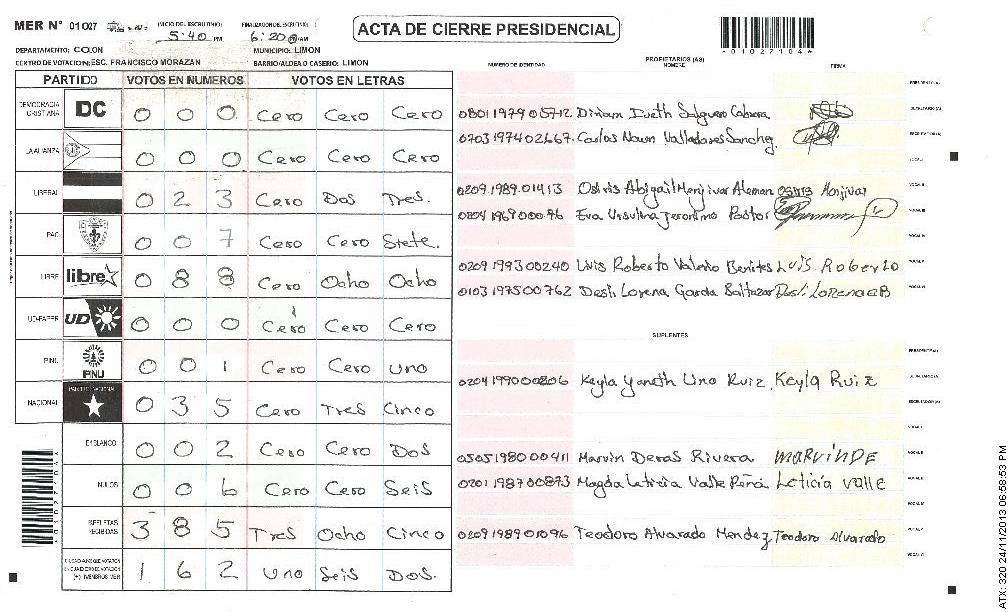 MER N° 01027 INICIO DEL ESCRUTINIO: 5:40 PM FINALIZACION DEL ESCRUTINIO: 6:20 PM/AM
ACTA DE CIERRE PRESIDENCIAL
*01027104*
DEPARTAMENTO: COLON MUNICIPIO: LIMON
CENTRO DE VOTACION: ESC. FRANCISCO MORAZAN BARRIO/ALDEA O CASERIO: LIMON
PARTIDO VOTOS EN NUMEROS VOTOS EN LETRAS
DEMOCRACIA CRISTIANA DC 0 0 0 Cero Cero Cero
LA ALIANZA 0 0 0 Cero Cero Cero
LIBERAL 0 2 3 Cero Dos Tres.
PAC 0 0 7 Cero Cero Siete.
LIBRE libre 0 8 8 Cero Ocho Ocho
UD-FAPER UD 0 0 0 Cero Cero Cero
PINU PINU 0 0 1 Cero Cero uno
NACIONAL PARTIDO NACIONAL 0 3 5 Cero Tres Cinco
EN BLANCO 0 0 2 Cero Cero Dos
NULOS 0 0 6 Cero Cero Seis
PAPELETAS RECIBIDAS 3 8 5 Tres Ocho Cinco
(+) MIEMBROS MER 1 6 2 Uno Seis Dos.
NUMERO DE IDENTIDAD PROPIETARIOS (AS) NOMBRE FIRMA
PRESIDENTE(A)
0801197905712 Diriam Iveth Salguero Cabrera SECRETARIO(A)
0703197402667 Carlos Naun Valladares Sanchez ESCRUTADOR(A)
VOCAL I
0209.1989.01413 Osiris Abigail Menjivar Aleman OSIRIS Menjivar VOCAL II
0204196900096 Eva Ursulina Jeronimo Pastor VOCAL III
VOCAL IV
0209199300240 Luis Roberto Valerio Benites Luis Roberto VOCAL V
0103197500762 Desli Lorena Garcia Baltazar Desli LorenaGB VOCAL VI
SUPLENTES
PRESIDENTE(A)
0204199000806 Keyla Yaneth Uno Ruiz Keyla Ruiz SECRETARIO(A)
ESCRUTADOR(A)
VOCAL I
0505198000411 Marvin Deras Rivera MARVINDE VOCAL II
0201198700873 Magda Leticia Valle Peña Leticia Valle VOCAL III
VOCAL IV
0209198901096 Teodoro Alvarado Mendez Teodoro Alvarado VOCAL V
VOCAL VI
ATX: 320 24/11/2013 06:58:53 PM